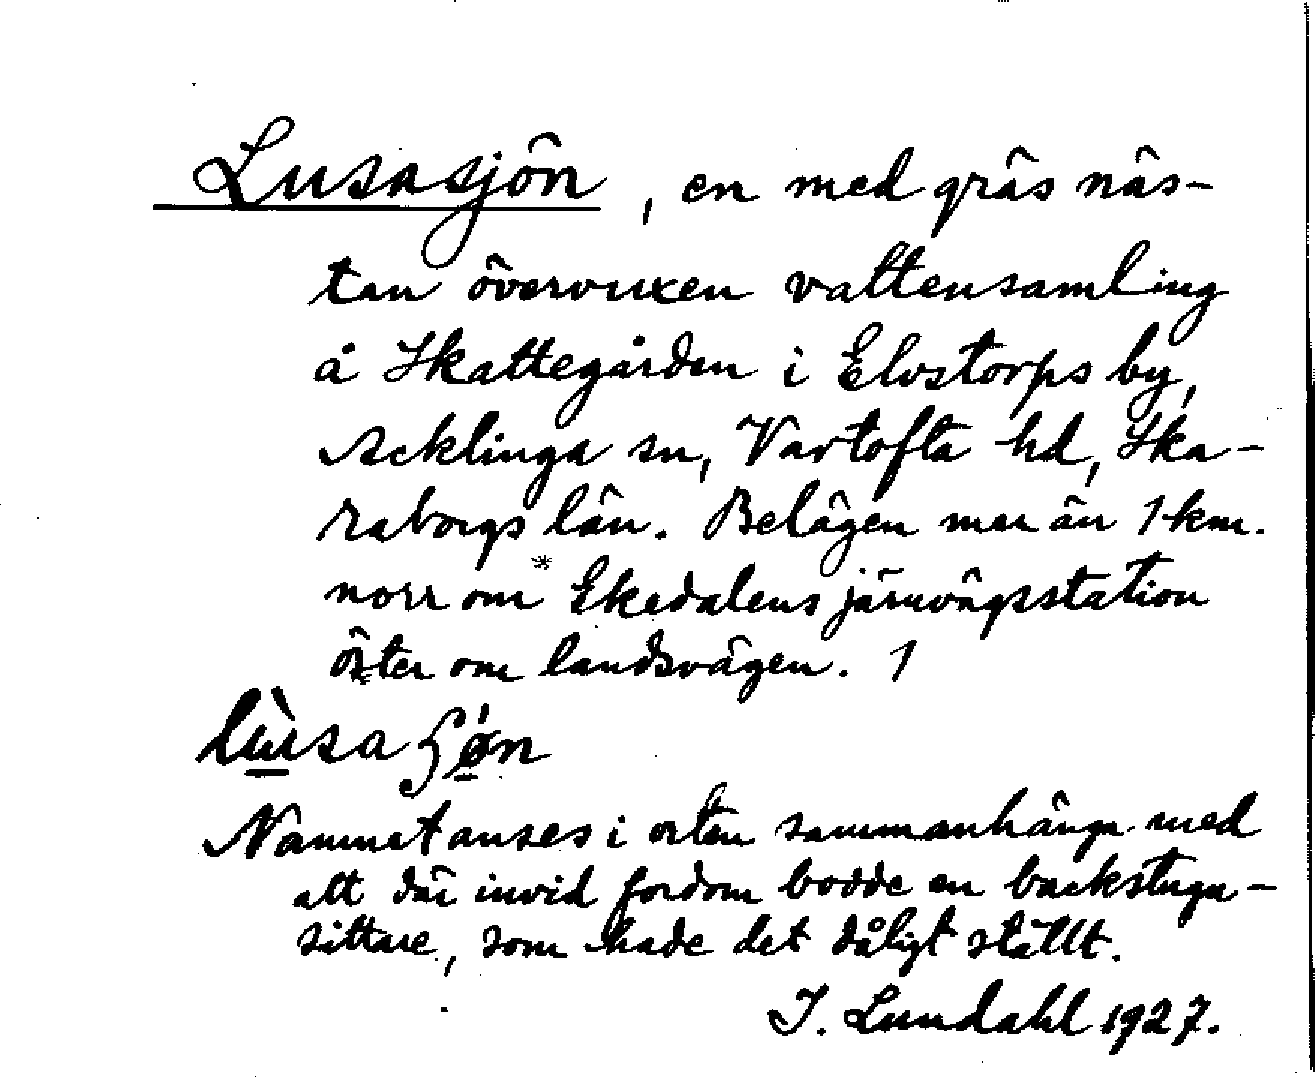 Lusasjön, en med gräs näs-
tan övervuxen vattensamling
å Skattegården i Elvstorps by,
Acklinga sn, Vartofta hd, Ska-
raborgs län. Belägen mer än 1 km.
norr om * Ekedalens järnvägsstation
öster om landsvägen. 1
Namnet anses i orten sammanhänga med
att där invid fordom bodde en backstugu-
sittare, som hade det dåligt ställt.
I. Lundahl 1927.